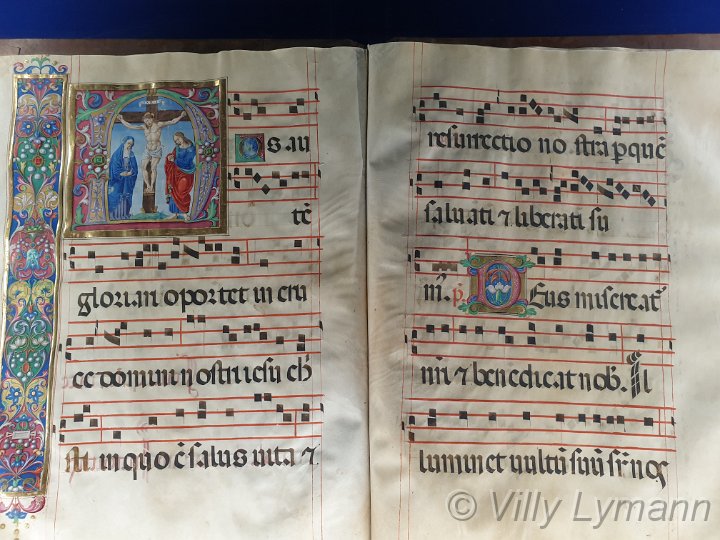 NOs au
tē
gloriari oportet in cru
ce domini nostri iesu ch̄
sti in quo ē salus uita ⁊
resurrectio nostra p quē
saluati ⁊ liberati su
m̄. p̄. Deus misereat᷑
nr̄i ⁊ benedicat nob̄. Il
luminet uultū suū sr̄ nos
© Villy Lymann